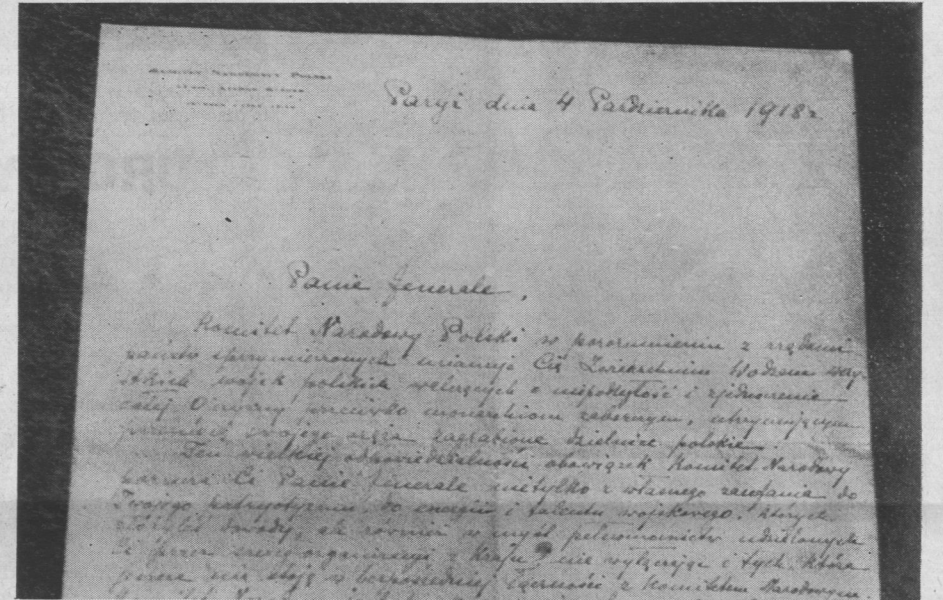 Paryż dnia 4 Października 1918 r
Panie Jenerale,
Komitet Narodowy Polski w porozumieniu z rządami
państw sprzymierzonych mianuje Cię Zwierzchnim Wodzem wszy-
stkich wojsk polskich walczących o niepodległość i zjednoczenie
całej Ojczyzny przeciwko monarchiom zaborczym, utrzymującym
przemocą swojego oręża zagrabione dzielnice polskie.
Ten wielkiej odpowiedzialności obowiązek Komitet Narodowy
Ci Panie Jenerale nietylko z własnego zaufania do
Twojego patryotyzmu, do energii i talentu wojskowego, których
złożyłeś dowody, ale również w myśl pełnomocnictw udzielonych
przez szereg organizacyi z kraju, nie wyłączając i tych, które
nie stoją w bezpośredniej łączności z Komitetem Narodowym.